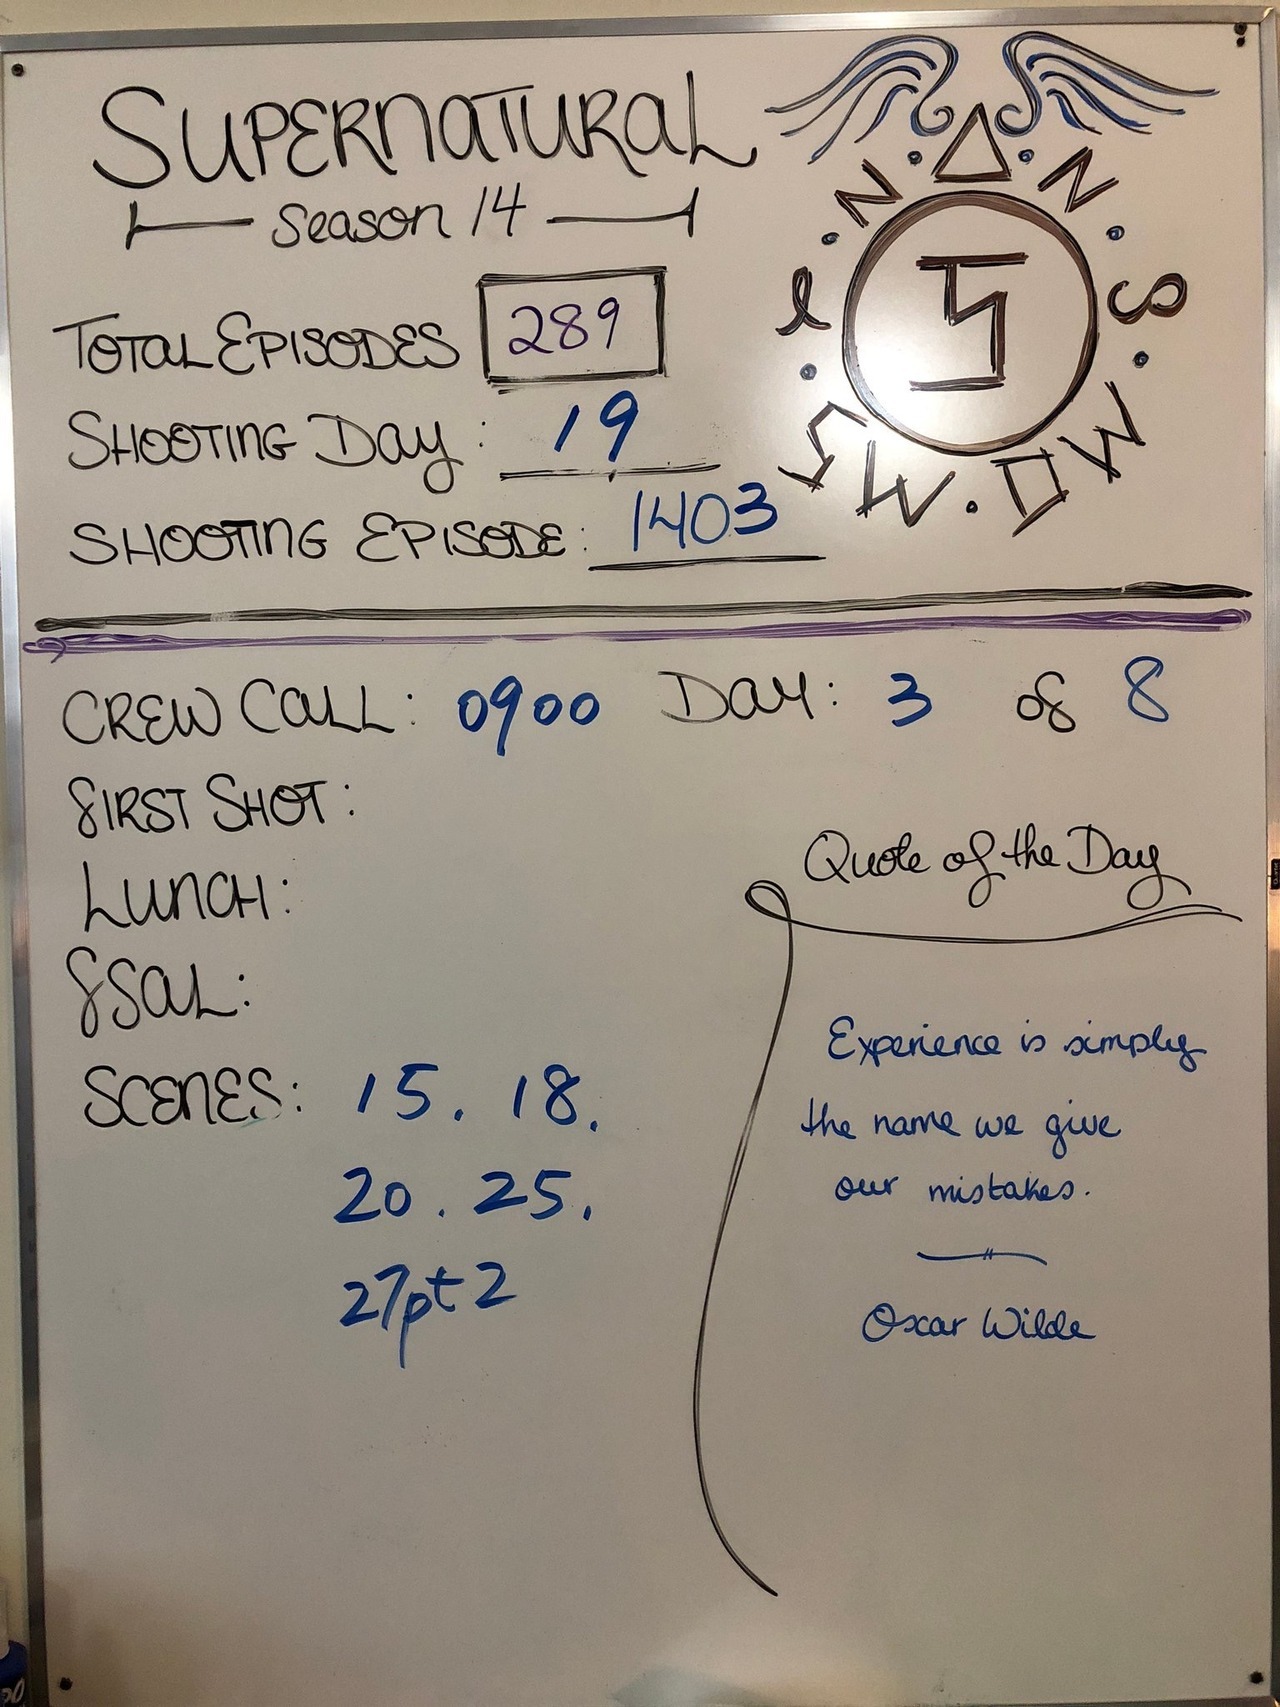 SUPERNATURAL
Season 14
TOTAL EPISODES 289
SHOOTING DAY: 19
SHOOTING EPISODE: 1403
CREW CALL: 0900 DAY: 3 of 8
FIRST SHOT:
LUNCH:
FSAL:
SCENES: 15. 18.
20. 25.
27pt2
Quote of the Day
Experience is simply
the name we give
our mistakes.
Oscar Wilde